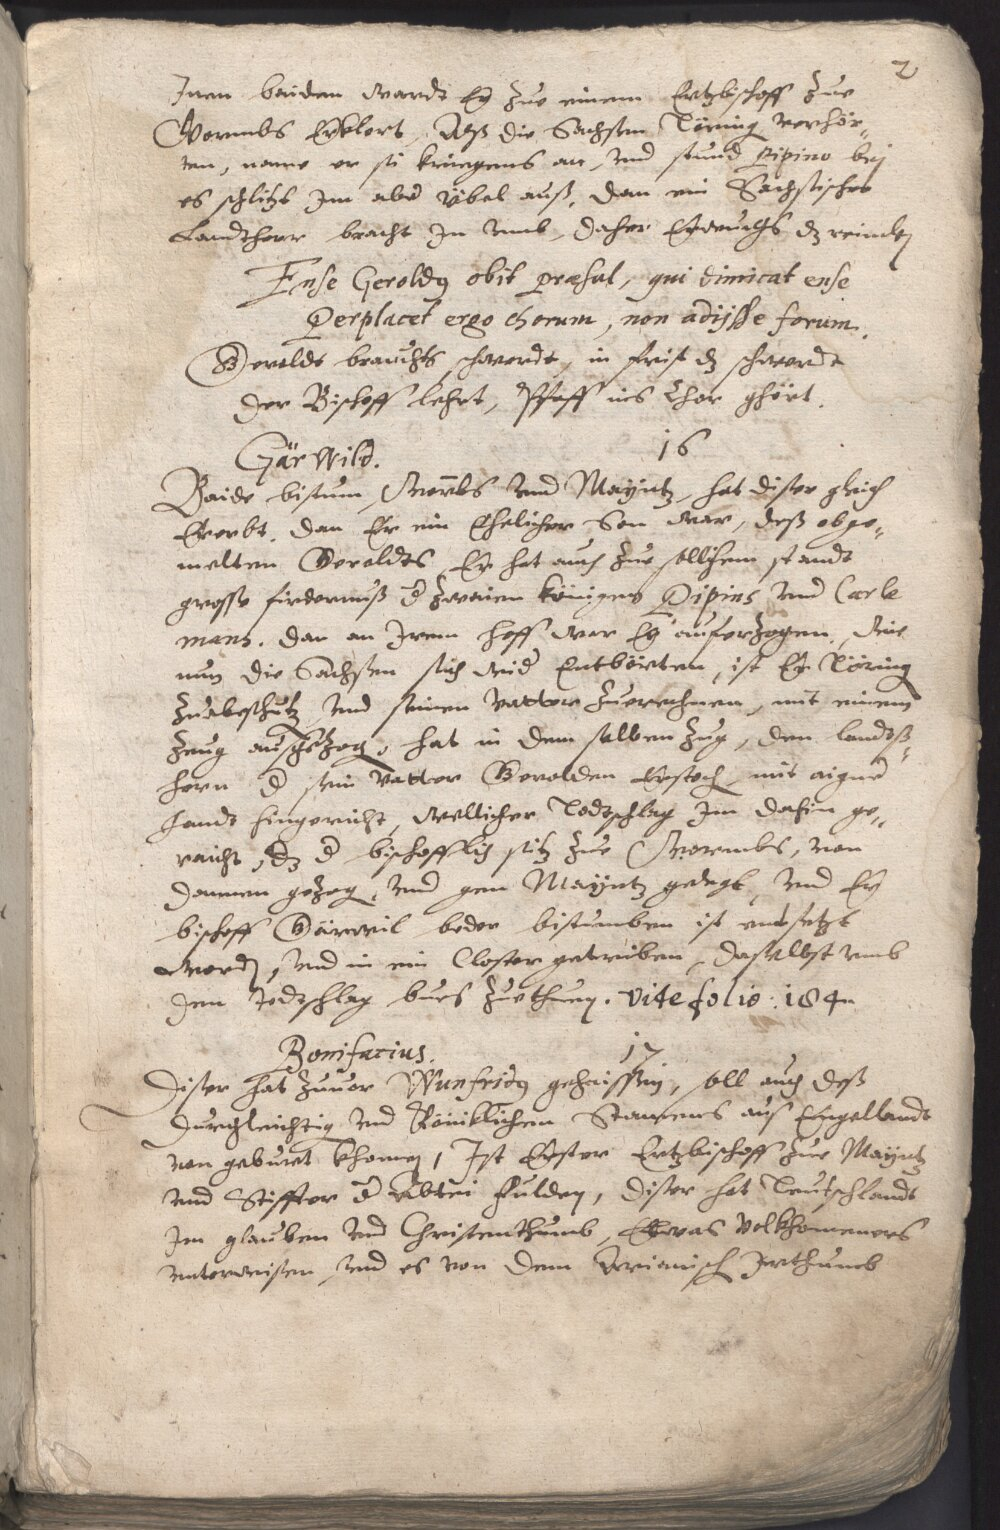 2
Inen baiden wardt Er zue einem Ertzbischoff zue
Wormbs Erklert, Alß die Sachssen Töring verhör„
ten, name er sich kriegens an, und stund Pipino bej
es schlueg Im aber übel auß, dan ein Sachsischer
Landtherr bracht In umb, daher Erwuchs dz reimlej
Ense Geroldus obit præsul, qui dimicat ense
Perplacet ergo chorum, non adijsse forum.
Gerolds brauchts schwerdt, in frist dz schwerdt
der Bischoff lehrt, Pfaff ins Chor ghört.
Gärwild. 16
Baide bistum, Wormbs und Mayntz, hat diser gleich
Ererbt. dan Er ein Ehelicher Son war, deß obge„
melten Geroldts, Er hat auch zue sollichem standt
grosse fürdernuß der zwaien königen Pipins und Carle
mans. dan an Irem hoff war Er auferzogen, Wie
nun die Sachsen sich wider Entbörten, ist Er Töring
zuebeschutz, und seinen vatter zuerechnen, mit einem
zeug auszogen, hat in dem selben zug, den landtß„
hern der sein vatter Gerolden Erstoch mit aigner
handt hingericht, wellicher Todtschlag Im dahin ge„
raicht, dz der bischofflich sitz zue Wormbs, von
dannen gezog, und gen Mayntz gelegt, und Er
bischoff Gärwil beder bistumben ist entsetzt
worden, und in ein Closter getriben, daselbst umb
den Todschlag bues zuethun. Vite folio: 184
Bonifacius. 17
Diser hat zuvor Wunfridus gehaissen, soll auch deß
durchleichtig und Köniklichem Stammens aus Engellandt
von geburt khomen, Ist Erster Ertzbischoff zue Mayntz
und Stiffter der Abtei Fulden, diser hat Teutschlandt
Im glauben und Christenthumb, Etwas volkhomeners
unterweisen, und es von dem Arrianisch Irthumb